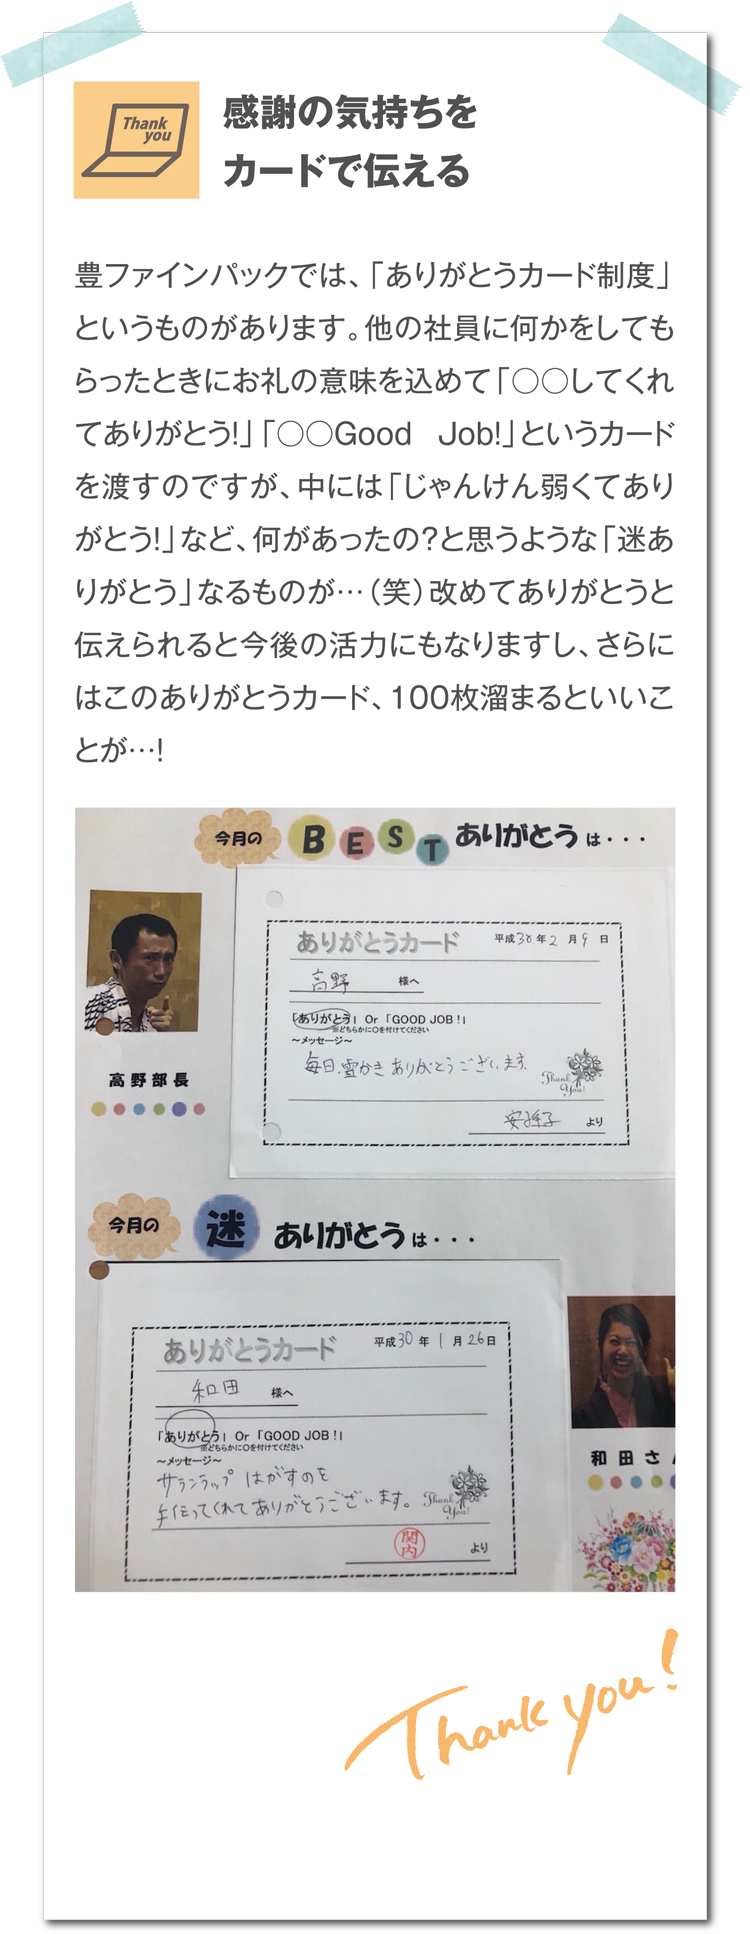 Thank
you
感謝の気持ちを
カードで伝える
豊ファインパックでは、「ありがとうカード制度」
というものがあります。他の社員に何かをしても
らったときにお礼の意味を込めて「○○してくれ
てありがとう!」「○○Good Job!」というカード
を渡すのですが、中には「じゃんけん弱くてあり
がとう!」など、何があったの?と思うような「迷あ
りがとう」なるものが…（笑）改めてありがとうと
伝えられると今後の活力にもなりますし、さらに
はこのありがとうカード、100枚溜まるといいこ
とが…!
今月の BEST ありがとう は・・・
ありがとうカード 平成30年2月9日
高野 様へ
「ありがとう」 Or 「GOOD JOB!」
※どちらかに○を付けてください
～メッセージ～
毎日、雪かきありがとうございます。
Thank You!
安孫子 より
高野部長
今月の 迷 ありがとう は・・・
ありがとうカード 平成30年1月26日
和田 様へ
「ありがとう」 Or 「GOOD JOB!」
※どちらかに○を付けてください
～メッセージ～
サランラップ はがすのを
手伝ってくれてありがとうございます。
Thank You!
関内 より
和田さん
Thank you!